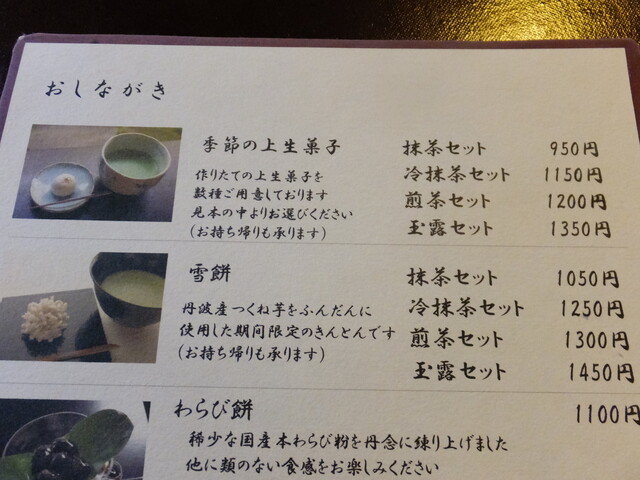 おしながき
季節の上生菓子
作りたての上生菓子を
数種ご用意しております
見本の中よりお選びください
(お持ち帰りも承ります)
抹茶セット 950円
冷抹茶セット 1150円
煎茶セット 1200円
玉露セット 1350円
雪餅
丹波産つくね芋をふんだんに
使用した期間限定のきんとんです
(お持ち帰りも承ります)
抹茶セット 1050円
冷抹茶セット 1250円
煎茶セット 1300円
玉露セット 1450円
わらび餅 1100円
稀少な国産本わらび粉を丹念に練り上げました
他に類のない食感をお楽しみください